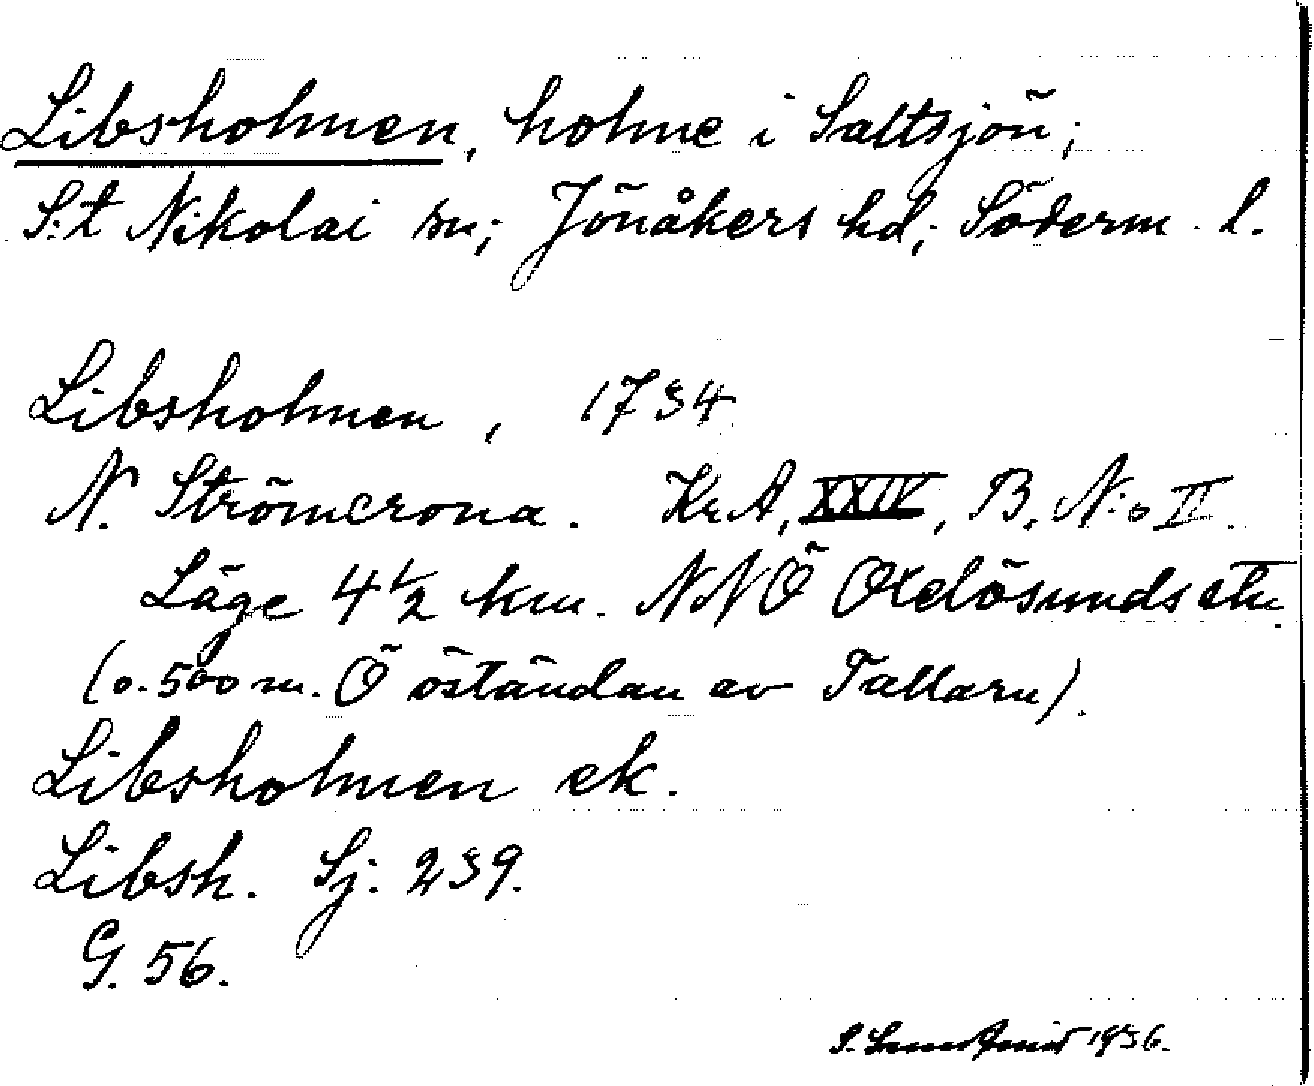 Libsholmen, holme i Saltsjön;
S:t Nikolai sn; Jönåkers hd; Söderm. l.
Libsholmen, 1734
N. Strömcrona. Kr.A, XXIV, B. N:o II.
Läge 4 1/2 km. NNÖ Oxelösunds stn.
(o. 500 m. Ö öständan av Tallarn).
Libsholmen ek.
Libsh. Sj. 239.
G. 56.
1936.